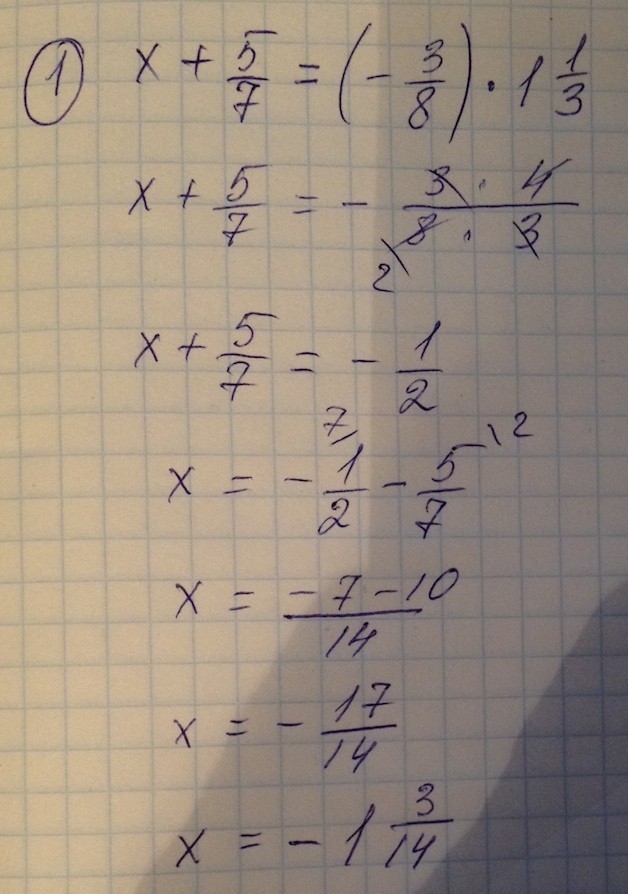 ① x + 5/7 = (- 3/8) · 1 1/3
x + 5/7 = - (3 · 4)/(8 · 3)
2
x + 5/7 = - 1/2
7 2
x = - 1/2 - 5/7
x = (-7 - 10)/14
x = - 17/14
x = - 1 3/14